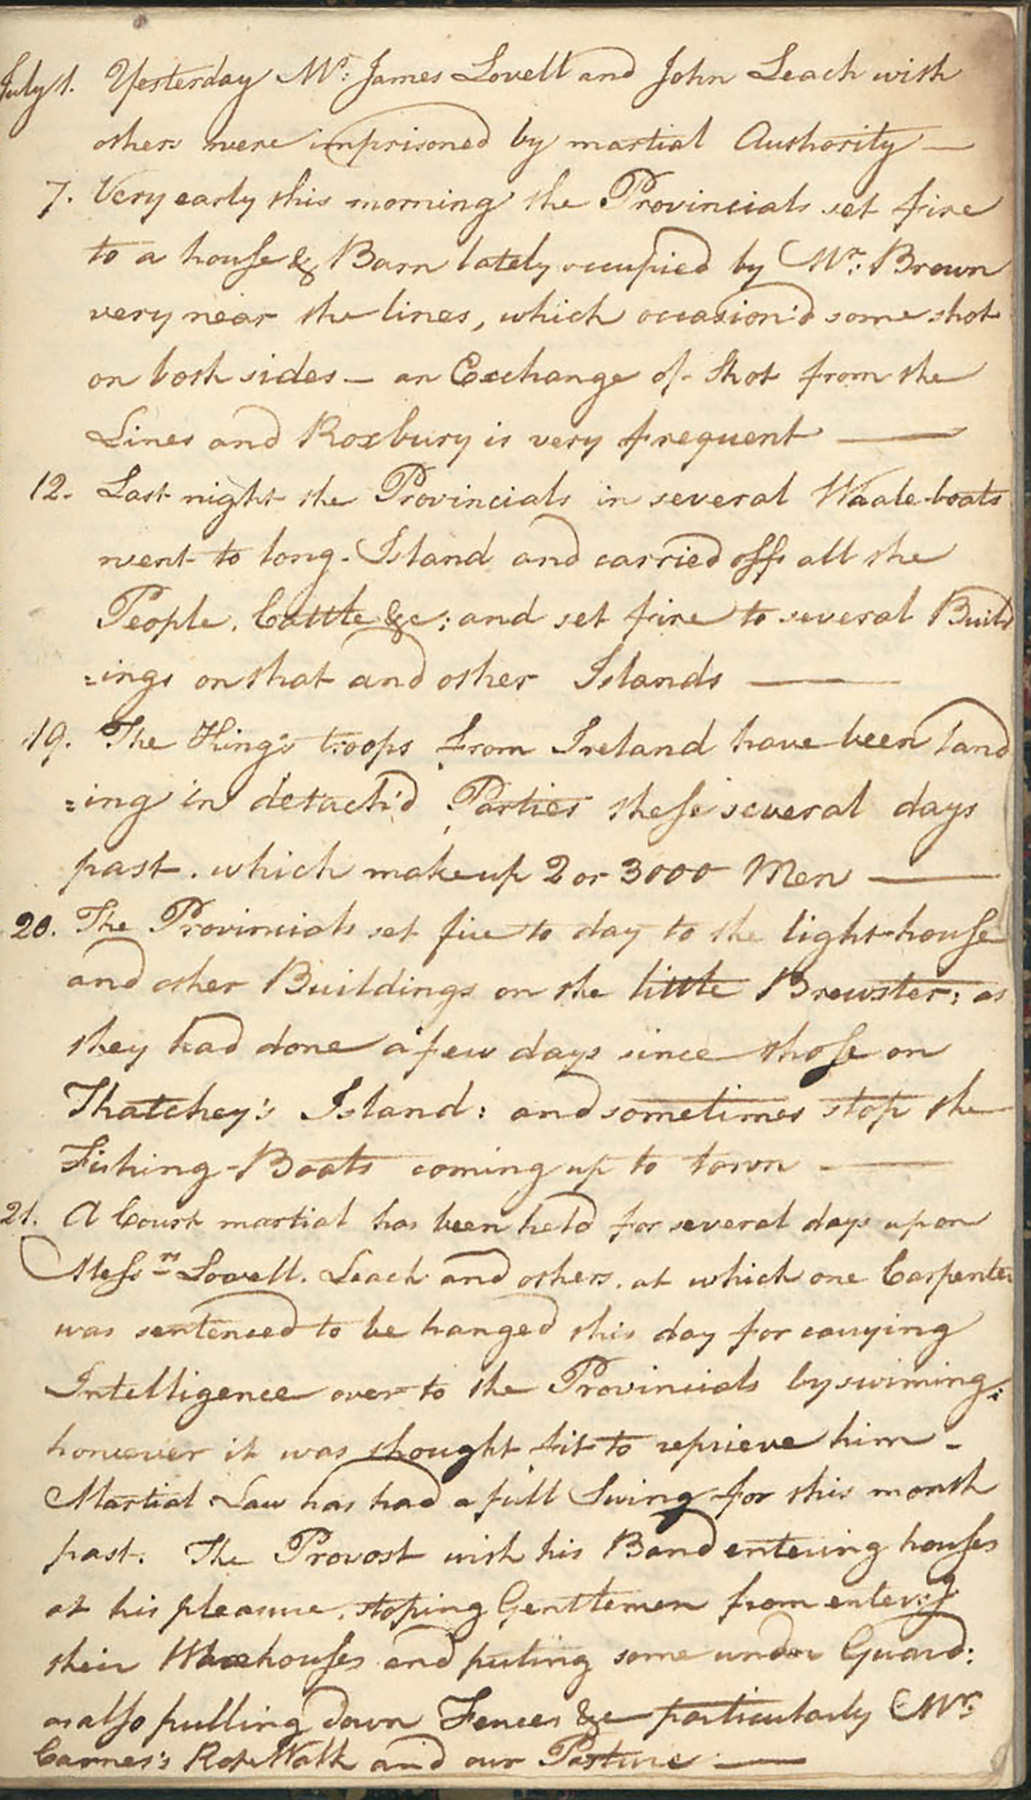 July 1. Yesterday Mr: James Lovell and John Leach with
others were imprisoned by martial Authority —
7. Very early this morning the Provincials set fire
to a house & Barn lately occupied by Mr: Brown
very near the lines, which occasion'd some shot
on both sides — an Exchange of Shot from the
Lines and Roxbury is very frequent —
12. Last night the Provincials in several Waale-boats
went to long-Island and carried off all the
People, Cattle &c: and set fire to several Build
=ings on that and other Islands —
19. The King's troops from Ireland have been land
=ing in detach'd Parties these several days
past. which make up 2 or 3000 Men —
20. The Provincials set fire to day to the light-house
and other Buildings on the little Brewster: as
they had done a few days since those on
Thatchey's Island: and sometimes stop the
Fishing-Boats coming up to town —
21. A Court martial has been held for several days upon
Messrs Lovell. Leach and others. at which one Carpenter
was sentenced to be hanged this day for carrying
Intelligence over to the Provincials by swiming:
however it was thought fit to reprieve him —
Martial Law has had a full Swing for this month
past. The Provost with his Band entering houses
at his pleasure, stoping Gentlemen from enter.g
their Warehouses and puting some under Guard:
as also pulling down Fences &c particularly Mr:
Carnes's RopeWalk and our Pasture —